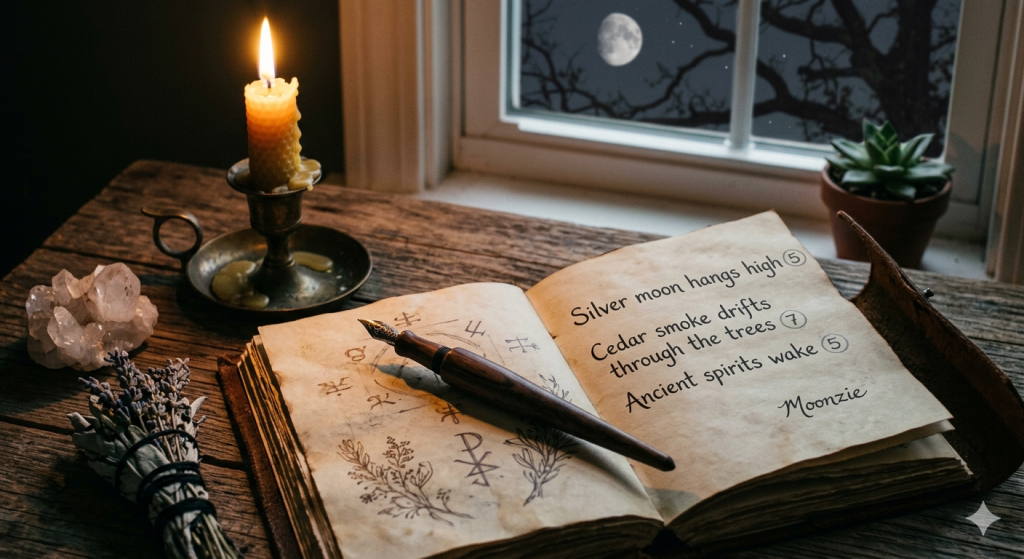 Silver moon hangs high ⑤
Cedar smoke drifts
through the trees ⑦
Ancient spirits wake ⑤
Moonzie